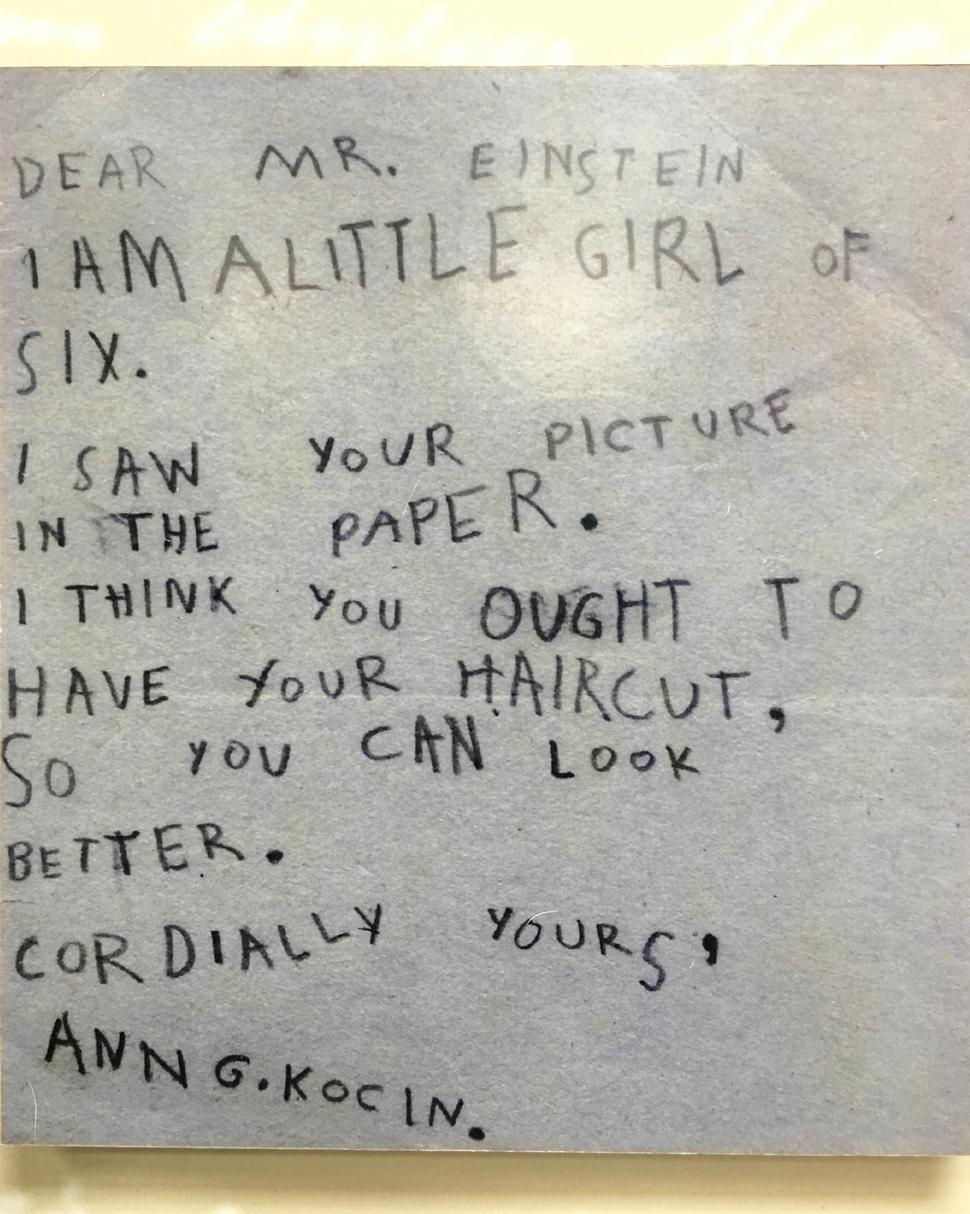 DEAR MR. EINSTEIN
I AM A LITTLE GIRL OF
SIX.
I SAW YOUR PICTURE
IN THE PAPER.
I THINK YOU OUGHT TO
HAVE YOUR HAIRCUT,
SO YOU CAN LOOK
BETTER.
CORDIALLY YOURS,
ANN G. KOCIN.